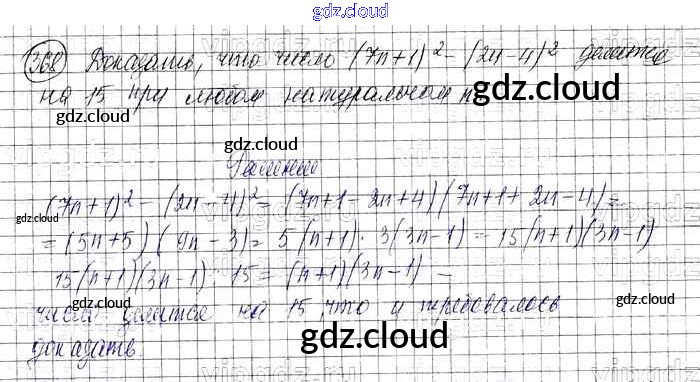 gdz.cloud
368 Доказать, что число (7n+1)² - (2n-4)² делится
на 15 при любом натуральном n.
gdz.cloud
Решение
(7n+1)² - (2n-4)² = (7n+1-2n+4)(7n+1+2n-4) =
gdz.cloud
= (5n+5)(9n-3) = 5(n+1)·3(3n-1) = 15(n+1)(3n-1)
gdz.cloud
15(n+1)(3n-1) : 15 = (n+1)(3n-1) -
число делится на 15, что и требовалось
gdz.cloud
доказать.
gdz.cloud